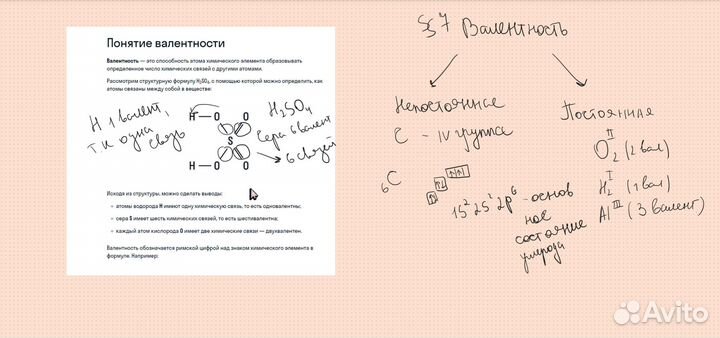 Понятие валентности
Валентность — это способность атома химического элемента образовывать
определенное число химических связей с другими атомами.
Рассмотрим структурную формулу H₂SO₄, с помощью которой можно определить, как
атомы связаны между собой в веществе:
H 1 валент,
т к одна
связь
H — O O
S
H — O O
H₂SO₄
Сера 6 валент
6 связей
Исходя из структуры, можно сделать выводы:
• атомы водорода H имеют одну химическую связь, то есть одновалентны;
• сера S имеет шесть химических связей, то есть шестивалентна;
• каждый атом кислорода O имеет две химические связи — двухвалентен.
Валентность обозначается римской цифрой над знаком химического элемента в
формуле. Например:
§ 7 Валентность
Непостоянная
C - IV группа
₆C
1S² 2S² 2p⁶ - основ
ное
состояние
углерода
Постоянная
II
O₂ (2 вал)
I
H₂ (1 вал)
Al III (3 валент)
Avito